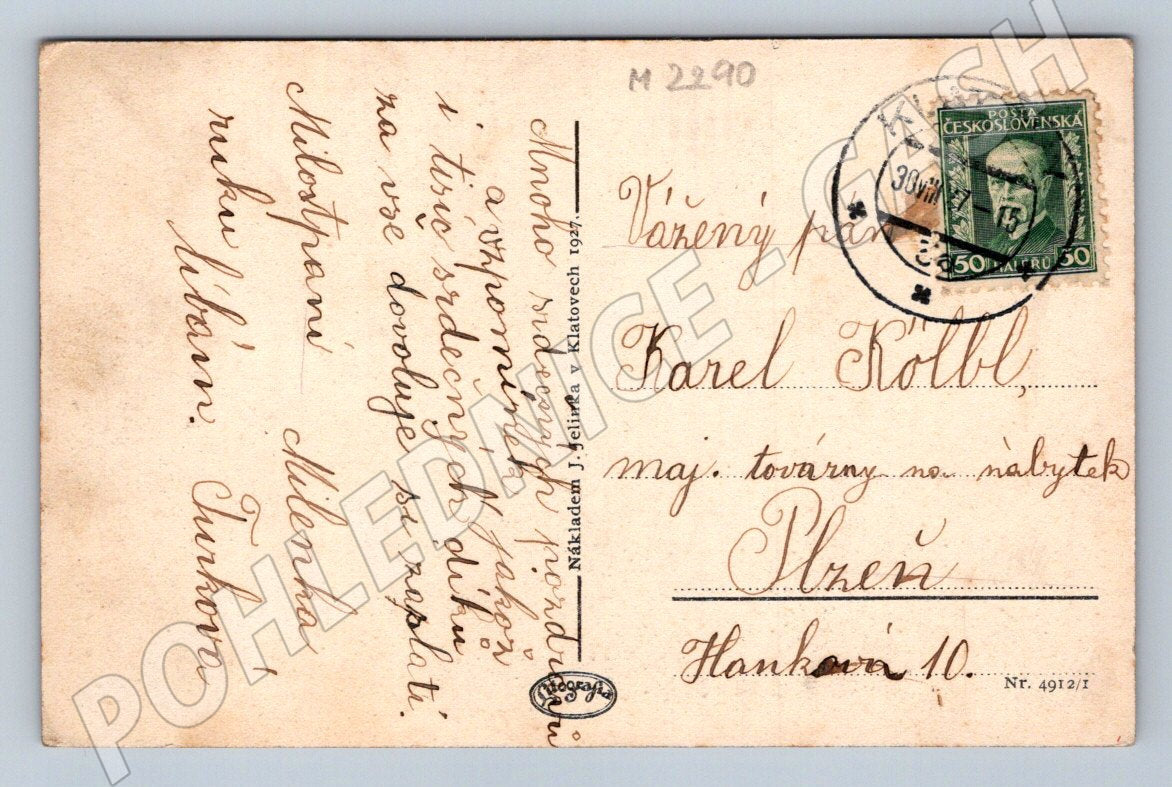 M 2290
Mnoho srdečných pozdravů
a vzpomínek jakož
i tisíc srdečných díků
za vše dovoluje si zaslati.
Milostpaní Milenka
ruku líbám. Turková
Nákladem J. Jelínka v Klatovech 1927.
Litografia
POŠTA
ČESKOSLOVENSKÁ
50 HALÉŘŮ 50
30 VIII 27 - 15
Vážený pán
Karel Kölbl,
maj. továrny na nábytek
Plzeň
Hanková 10.
Nr. 4912/1
POHLEDNICE - CASH